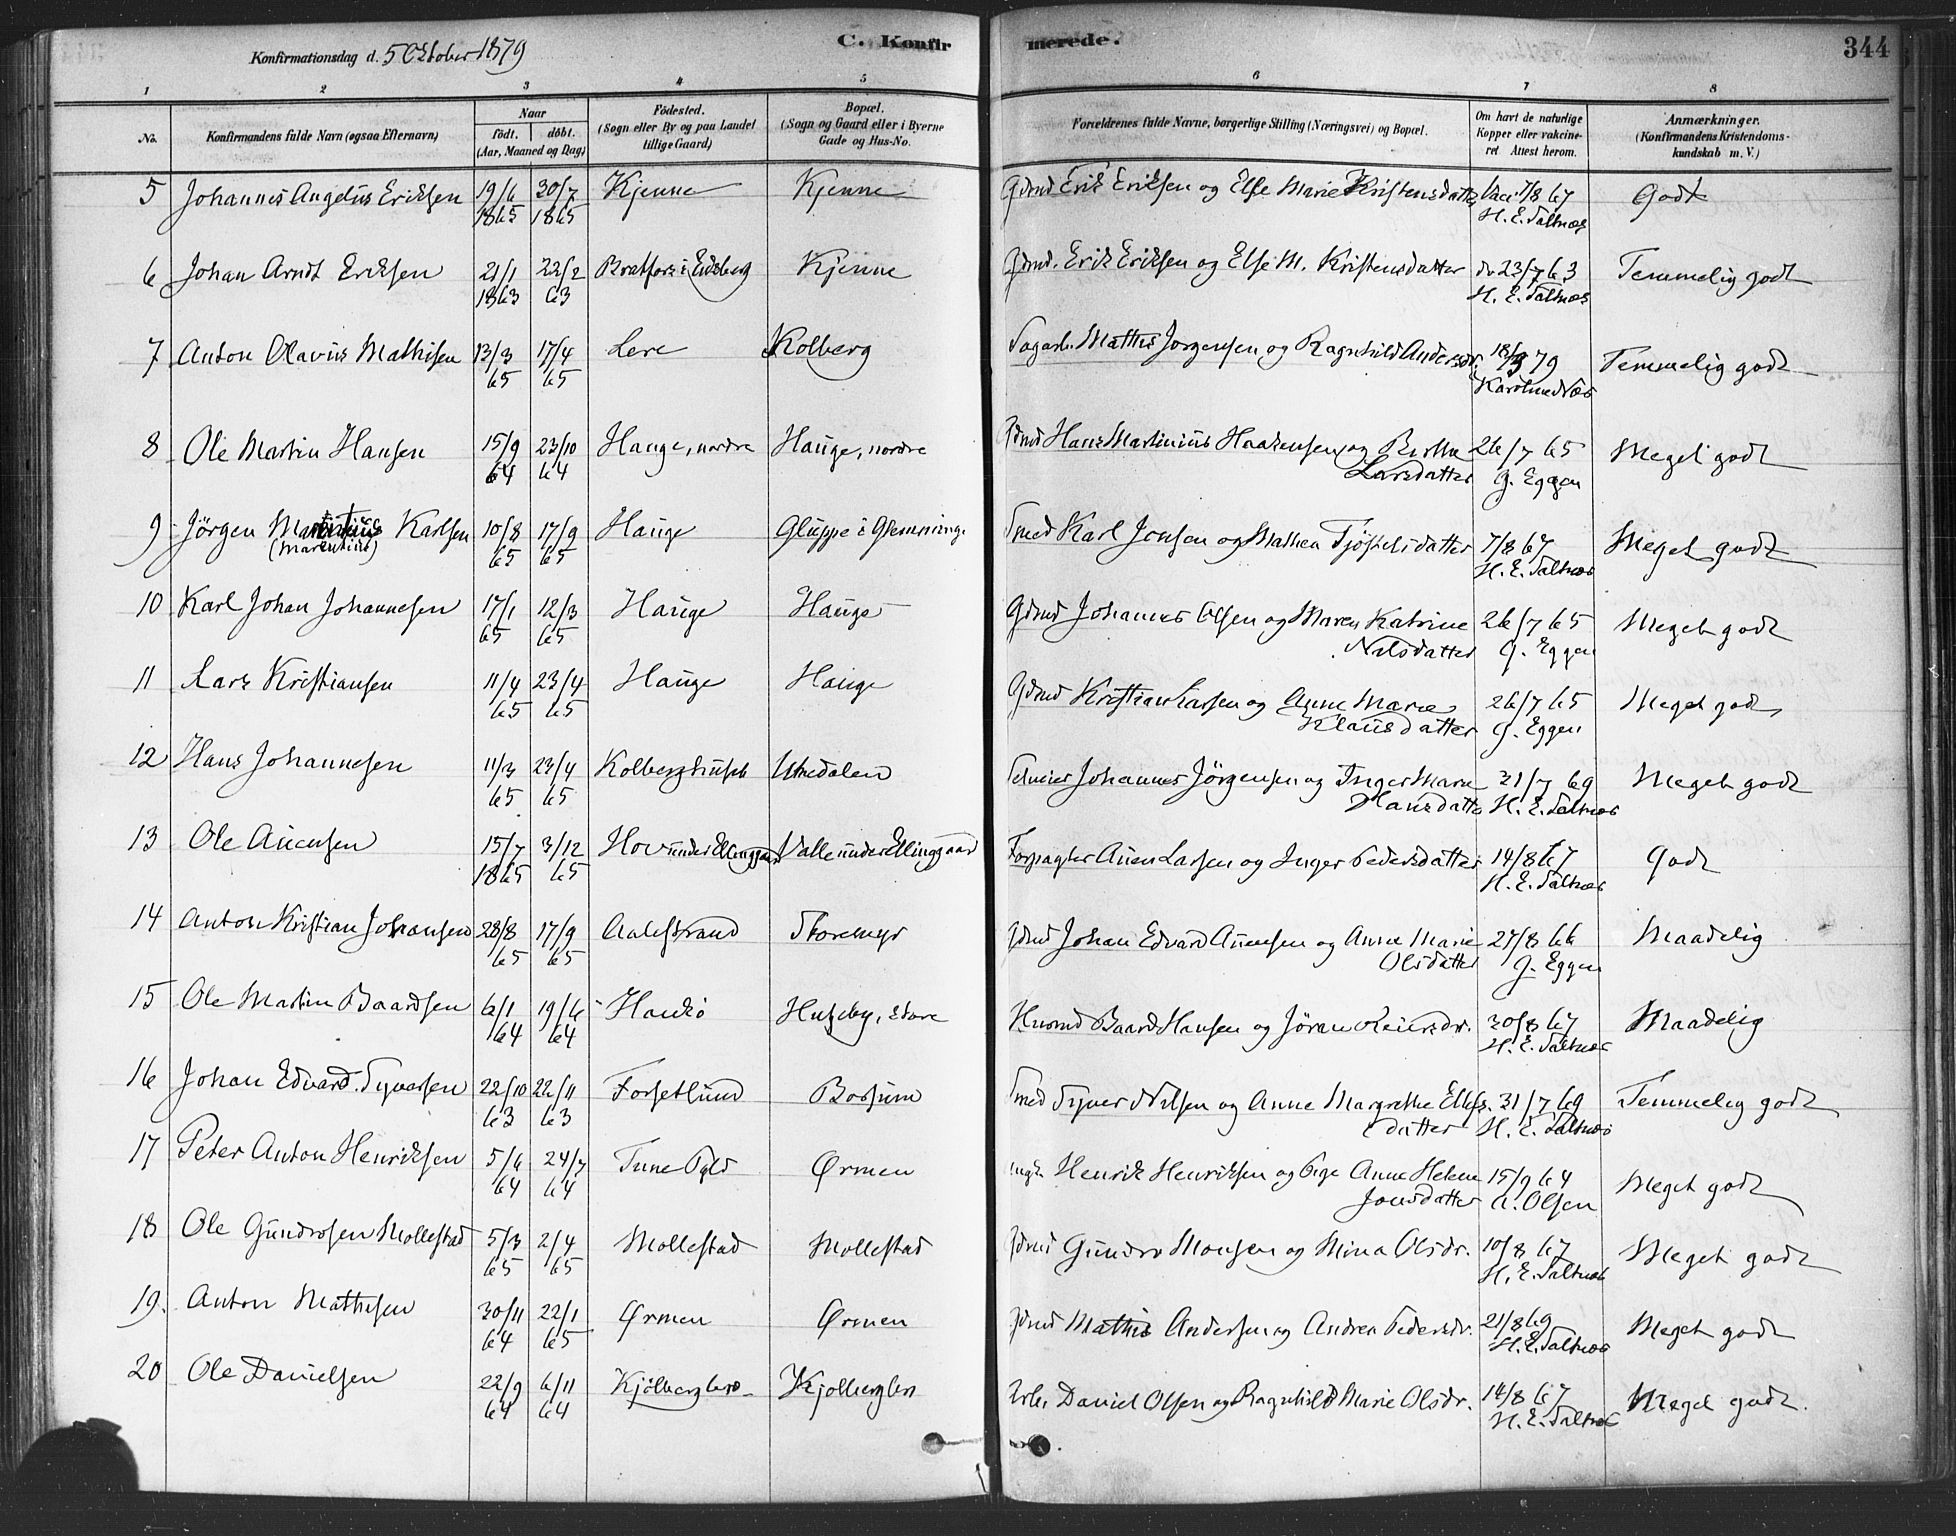 C. Konfirmerede.
344
Konfirmationsdag d. 5 Oktober 1879
1 2 3 4 5 6 7 8
No.
Konfirmandens fulde Navn (ogsaa Efternavn)
Naar
födt. döbt.
(Aar, Maaned og Dag)
Födested.
(Sogn eller By og paa Landet
tillige Gaard)
Bopæl.
(Sogn og Gaard eller i Byerne
Gade og Hus-No.
Forældrenes fulde Navne, borgerlige Stilling (Næringsvei) og Bopæl.
Om havt de naturlige
Kopper eller vakcine-
ret Attest herom.
Anmærkninger.
(Konfirmandens Kristendoms-
kundskab m. V.)
5 Johannes Angelus Eriksen 19/6 1865 30/7 1865 Kjenne Kjenne Gdmd Erik Eriksen og Else Marie Kristensdatter Vacc. 7/8 67 H. E. Saltnæs Godt
6 Johan Arndt Eriksen 21/1 1863 22/2 63 Bratfors i Eidsberg Kjenne Gdmd. Erik Eriksen og Else M. Kristensdatter do 23/7 63 H. E. Saltnæs Temmelig godt
7 Anton Olavus Mathisen 13/3 65 17/4 65 Lere Kolberg Sagarb. Mathis Jorgensen og Ragnhild Andersdr. 18/3 79 Temmelig godt
8 Ole Martin Hansen 15/9 64 23/10 64 Hauge, nordre Hauge, nordre Gdmd Hans Martinius Haakensen og Berthe Larsdatter 26/7 65 G. Eggen Meget godt
9 Jörgen Karlsen (Marentius) 10/8 65 17/9 65 Hauge Gluppe i Glemminge Smed Karl Jonsen og Mathea Tjöstelsdatter 7/8 67 H. E. Saltnæs Meget godt
10 Karl Johan Johannesen 17/1 65 12/3 65 Hauge Hauge Gdmd Johannes Olsen og Maren Katrine Nilsdatter 26/7 65 G. Eggen Meget godt
11 Lars Kristiansen 11/4 65 23/4 65 Hauge Hauge Gdmd Kristian Larsen og Anne Marie Klausdatter 26/7 65 G. Eggen Meget godt
12 Hans Johannesen 11/3 65 23/4 65 Utnedalen Selveier Johannes Jörgensen og Inger Marie Hansdatter 31/7 69 H. E. Saltnæs Meget godt
13 Ole Auensen 15/7 1865 3/12 65 Hov under Elinggaard Valle under Elinggaard Forpagter Auen Larsen og Inger Pedersdatter 14/8 67 H. E. Saltnæs Godt
14 Anton Kristian Johansen 28/8 65 17/9 65 Aalestrand Storemyr Gdmd Johan Edvard Auensen og Anne Marie Olsdatter 27/8 66 G. Eggen Maadelig
15 Ole Martin Baardsen 6/1 64 19/6 64 Hankö Huseby, store Husmd Baard Hansen og Jöran Reiersdr. 30/8 67 H. E. Saltnæs Maadelig
16 Johan Edvard Syversen 22/10 63 22/11 63 Forsetlund Bossum Smed Syver Nilsen og Anne Margrethe Ellefsdatter 31/7 69 H. E. Saltnæs Temmelig godt
17 Peter Anton Henriksen 5/6 64 24/7 64 Tune Ørmen Ungk. Henrik Henriksen og Pige Anne Helene Jonsdatter 15/9 64 A. Olsen Meget godt
18 Ole Gundrosen Mollestad 5/3 65 2/4 65 Mollestad Mollestad Gdmd Gundro Monsen og Mina Olsdr. 10/8 67 H. E. Saltnæs Meget godt
19. Anton Mathisen 30/11 64 22/1 65 Ørmen Ørmen Gdmd Mathis Andersen og Andrea Pedersdr. 21/8 69 H. E. Saltnæs Meget godt
20 Ole Danielsen 22/9 64 6/11 64 Kjölbergbro Kjölbergbro Arb. Daniel Olsen og Ragnhild Marie Olsdr. 14/8 67 H. E. Saltnæs Meget godt.